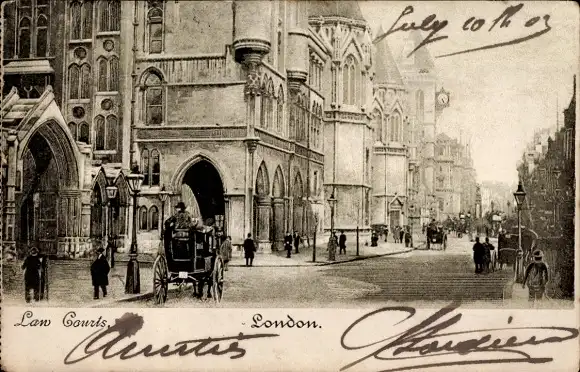 July 10th 03
Law Courts, London.
Amitiés